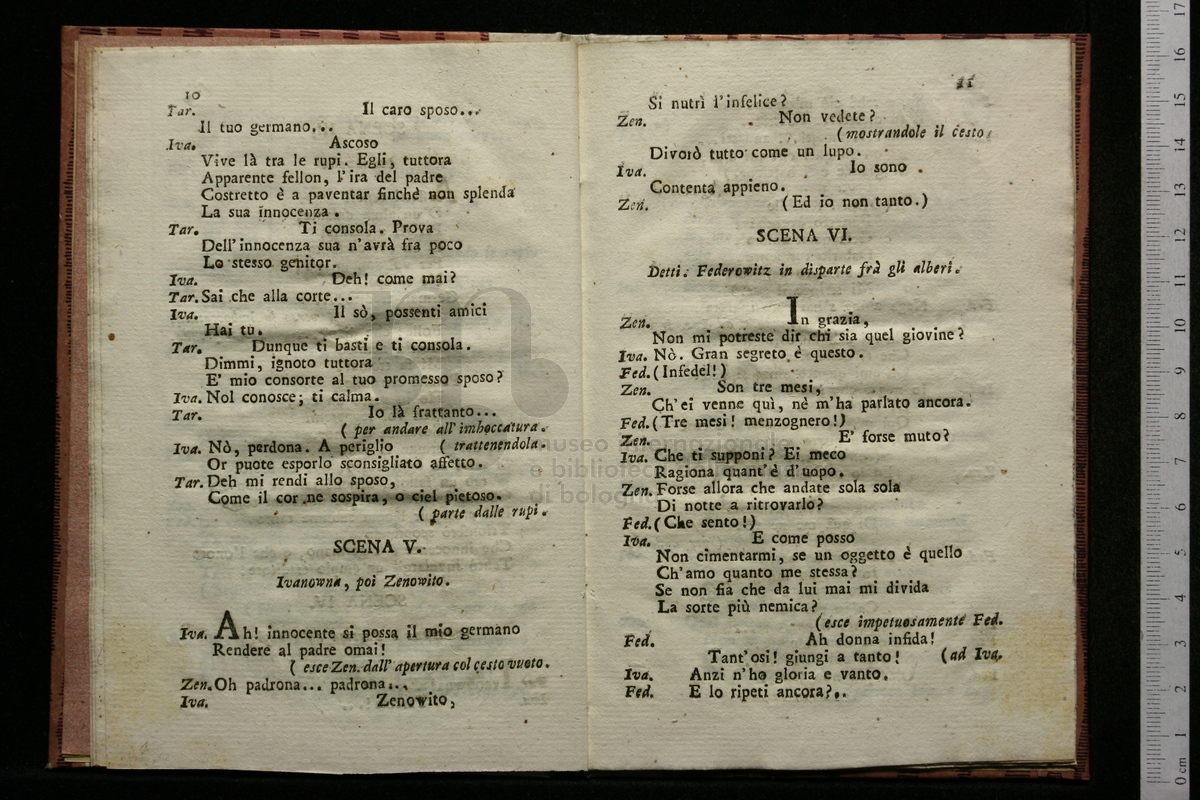 10
Tar. Il caro sposo...
Il tuo germano...
Iva. Ascoso
Vive là tra le rupi. Egli, tuttora
Apparente fellon, l'ira del padre
Costretto è a paventar finchè non splenda
La sua innocenza.
Tar. Ti consola. Prova
Dell'innocenza sua n'avrà fra poco
Lo stesso genitor.
Iva. Deh! come mai?
Tar. Sai che alla corte...
Iva. Il sò, possenti amici
Hai tu.
Tar. Dunque ti basti e ti consola.
Dimmi, ignoto tuttora
E' mio consorte al tuo promesso sposo?
Iva. Nol conosce; ti calma.
Tar. Io là frattanto...
( per andare all'imboccatura.
Iva. Nò, perdona. A periglio ( trattenendola.
Or puote esporlo sconsigliato affetto.
Tar. Deh mi rendi allo sposo,
Come il cor ne sospira, o ciel pietoso.
( parte dalle rupi.
SCENA V.
Ivanowna, poi Zenowito.
Iva. Ah! innocente si possa il mio germano
Rendere al padre omai!
( esce Zen. dall'apertura col cesto vuoto.
Zen. Oh padrona... padrona...
Iva. Zenowito,
11
Si nutrì l'infelice?
Zen. Non vedete?
(mostrandole il cesto
Divorò tutto come un lupo.
Iva. Io sono
Contenta appieno.
Zen. (Ed io non tanto.)
SCENA VI.
Detti. Federowitz in disparte frà gli alberi.
Zen. In grazia,
Non mi potreste dir chi sia quel giovine?
Iva. Nò. Gran segreto è questo.
Fed. (Infedel!)
Zen. Son tre mesi,
Ch'ei venne quì, nè m'ha parlato ancora.
Fed. (Tre mesi! menzognero!)
Zen. E' forse muto?
Iva. Che ti supponi? Ei meco
Ragiona quant'è d'uopo.
Zen. Forse allora che andate sola sola
Di notte a ritrovarlo?
Fed. (Che sento!)
Iva. E come posso
Non cimentarmi, se un oggetto è quello
Ch'amo quanto me stessa?
Se non fia che da lui mai mi divida
La sorte più nemica?
(esce impetuosamente Fed.
Fed. Ah donna infida!
Tant'osi! giungi a tanto! (ad Iva.
Iva. Anzi n'ho gloria e vanto.
Fed. E lo ripeti ancora?..
museo internazionale
e bibliote
di bologna
0 cm 1 2 3 4 5 6 7 8 9 10 11 12 13 14 15 16 17